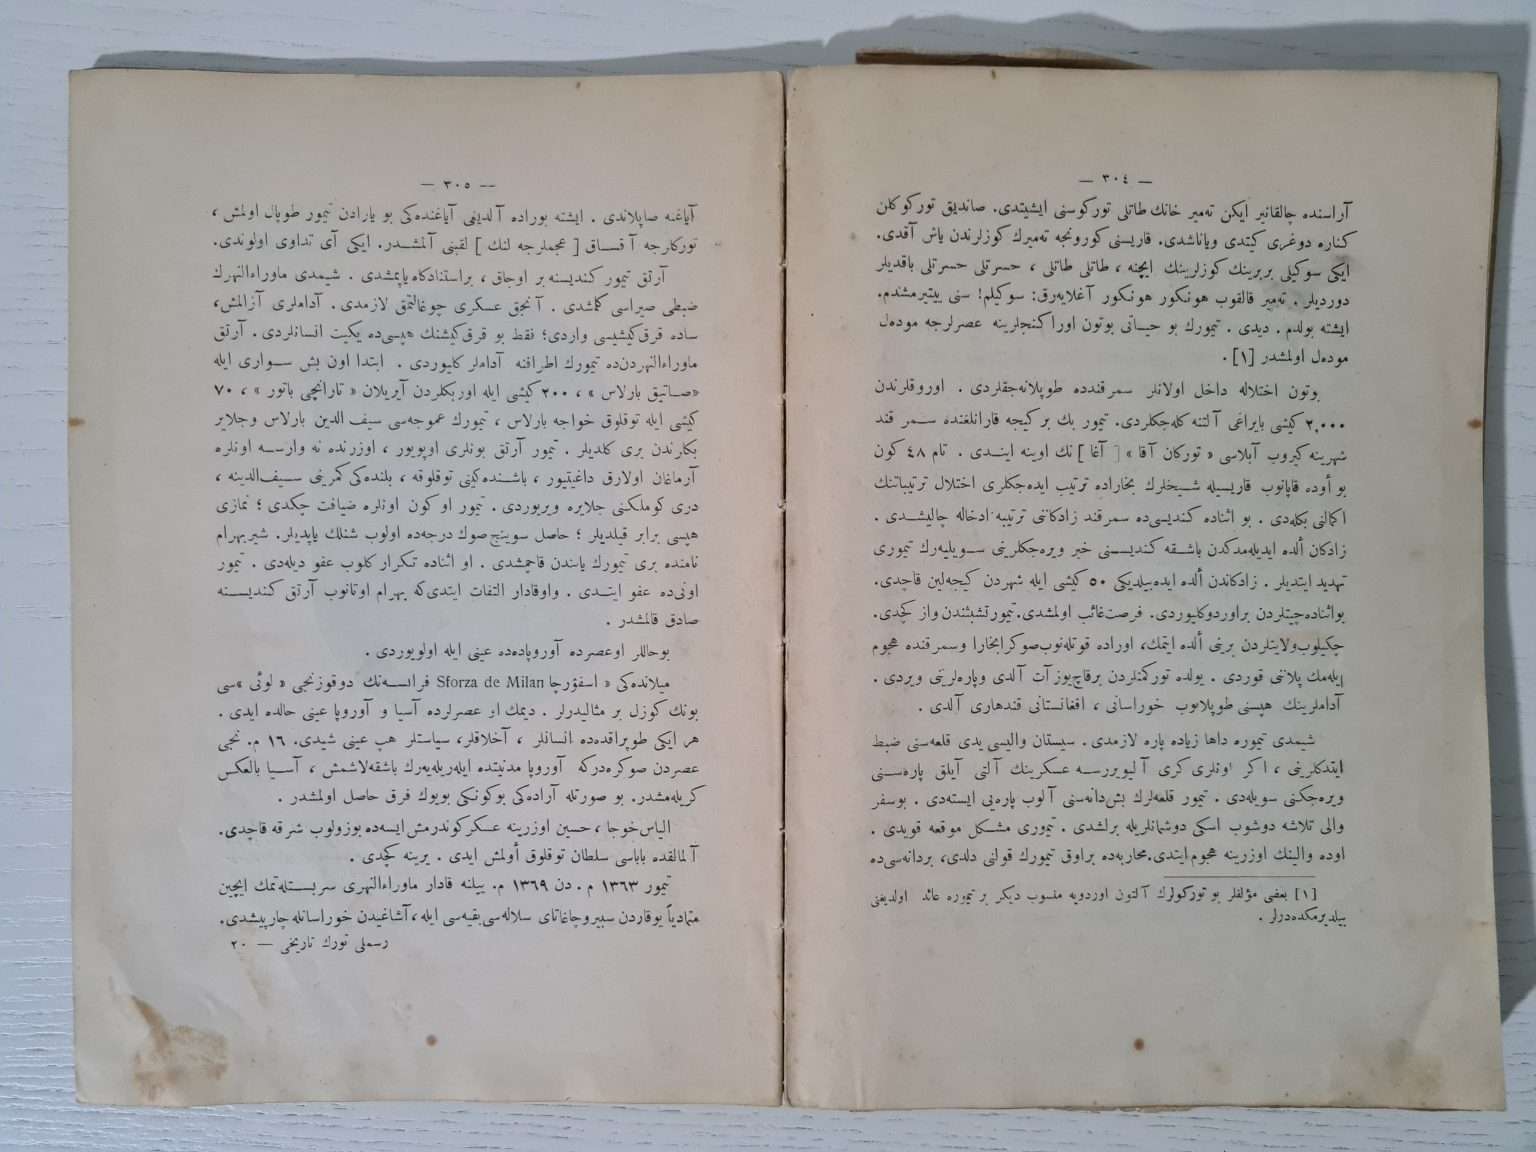 — ٣٠٤ —
آراسنده چالقانير ايكن ته‌مير خانك طاتلى توركوسنى ايشيتدى. صانديق توركوكلن
كناره دوغرى كيتدى وياناشدى. قاريسنى كورونجه ته‌ميرك كوزلرندن ياش آقدى.
ايكى سوكيلى بربرينك كوزلرينك ايچنه ، طاتلى طاتلى ، حسرتلى حسرتلى باقديلر
دورديلر . ته‌مير قالقوب هونكور هونكور آغلايه‌رق: سوكيلم! سنى ييتيرمشدم.
ايشته بولدم . ديدى . تيمورك بو حياتى بوتون اوزاكنجلرينه عصرلرجه موده‌ل
موده‌ل اولمشدر [١] .
بوتون اختلاله داخل اولانلر سمرقندده طوپلانه‌جقلردى . اوروقلرندن
٢,٠٠٠ كيشى بايراغى آلتنه كله‌جكلردى. تيمور بك بر كيجه قارانلغنده سمر قند
شهرينه كيروب آبلاسى « توركان آقا » [ آغا ] نك اوينه ايندى . تام ٤٨ كون
بو أوده قاپانوب قاريسيله شيخلرك بخاراده ترتيب ايده‌جكلرى اختلال ترتيباتنك
اكمالنى بكله‌دى . بو اثناده كنديسى‌ده سمرقند زادكاننى ترتيبه ادخاله چاليشدى .
زادكان ألده ايديله‌مدكدن باشقه كنديسنى خبر ويره‌جكلرينى سويليه‌رك تيمورى
تهديد ايتديلر . زادكاندن ألده ايده‌بيلديكى ٥٠ كيشى ايله شهردن كيجه‌لين قاچدى.
بواثناده‌چيتلردن براوردوكليوردى. فرصت‌غائب اولمشدى. تيمورتشبثندن واز كچدى.
چكيلوب‌ولايتلردن برينى ألده ايتمك، اوراده قوتله‌نوب‌صوكرابخارا وسمرقنده هجوم
ايله‌مك پلاننى قوردى . يولده توركمنلردن برقاچ‌يوز آت آلدى وپاره‌لرينى ويردى .
آداملرينك هپسنى طوپلايوب خوراسانى ، افغانستانى قندهارى آلدى .
شيمدى تيموره داها زياده پاره لازمدى . سيستان واليسى يدى قلعه‌سنى ضبط
ايتدكلرينى ، اكر اونلرى كرى آليويررسه عسكرينك آلتى آيلق پاره‌سنى
ويره‌جكنى سويله‌دى . تيمور قلعه‌لرك بش‌دانه‌سنى آلوب پاره‌يى ايسته‌دى . بوسفر
والى تلاشه دوشوب اسكى دوشمانلريله برلشدى . تيمورى مشكل موقعه قويدى .
اوده والينك اوزرينه هجوم ايتدى.محاربه‌ده براوق تيمورك قولنى دلدى، بردانه‌سى‌ده
[١] بعضى مؤلفلر بو توركولرك آلتون اوردويه منسوب ديكر بر تيموره عائد اولديغنى
بيلديرمكده‌درلر .
— ٣٠٥ —
آياغنه صاپلاندى . ايشته بوراده آلديغى آياغنده‌كى بو يارادن تيمور طوپال اولمش ،
توركلرجه آقساق [ عجملرجه لنك ] لقبنى آلمشدر. ايكى آى تداوى اولوندى.
آرتق تيمور كنديسنه بر اوجاق ، براستنادكاه ياپمشدى . شيمدى ماوراءالنهرك
ضبطى صيراسى كلمشدى . آنجق عسكرى چوغالتمق لازمدى . آداملرى آزالمش،
ساده قرق‌كيشيسى واردى؛ فقط بو قرق‌كيشنك هپسى‌ده يكيت انسانلردى . آرتق
ماوراءالنهردن‌ده تيمورك اطرافنه آداملر كليوردى . ابتدا اون بش سوارى ايله
«صاتيق بارلاس » ، ٢٠٠ كيشى ايله اوزبكلردن آيريلان « تارانچى باتور » ، ٧٠
كيشى ايله توقلوق خواجه بارلاس ، تيمورك عموجه‌سى سيف الدين بارلاس وجلاير
بكلرندن برى كلديلر . تيمور آرتق بونلرى اوپوبور ، اوزرنده نه وارسه اونلره
آرمغان اولارق داغيتيور ، باشنده‌كينى توقلوقه ، بلنده‌كى كمرينى سيف‌الدينه ،
درى كوملكنى جلايره ويريوردى . تيمور او كون اونلره ضيافت چكدى ؛ نمازى
هپسى برابر قيلديلر ؛ حاصل سوينج صوك درجه‌ده اولوب شنلك ياپديلر. شيربهرام
نامنده برى تيمورك ياندن قاچمشدى . او اثناده تكرار كلوب عفو ديله‌دى . تيمور
اونى‌ده عفو ايتدى . واوقادار التفات ايتدى‌كه بهرام اوتانوب آرتق كنديسنه
صادق قالمشدر .
بوحاللر اوعصرده آوروپاده‌ده عينى ايله اولويوردى .
ميلانده‌كى « اسفورچا Sforza de Milan فرانسه‌نك دوقوزنجى « لوئى »سى
بونك كوزل بر مثاليدرلر . ديمك او عصرلرده آسيا و آوروپا عينى حالده ايدى .
هر ايكى طوپراقده‌ده انسانلر ، آخلاقلر، سياستلر هپ عينى شيدى. ١٦ م. نجى
عصردن صوكره‌دركه آوروپا مدنيتده ايله‌ريله‌يه‌رك باشقه‌لاشمش ، آسيا بالعكس
كريله‌مشدر. بو صورتله آراده‌كى بوكونكى بويوك فرق حاصل اولمشدر .
الياس‌خوجا ، حسين اوزرينه عسكركوندرمش ايسه‌ده بوزولوب شرقه قاچدى.
آلمالقده باباسى سلطان توقلوق أولمش ايدى . يرينه كچدى .
تيمور ١٣٦٣ م . دن ١٣٦٩ م. ييلنه قادار ماوراءالنهرى سربستله‌تمك ايچين
متمادياً يوقاردن سيبروچاغاتاى سلاله‌سى‌بقيه‌سى ايله، آشاغيدن خوراسانله‌چارپيشدى.
رسملى تورك تاريخى — ٢٠